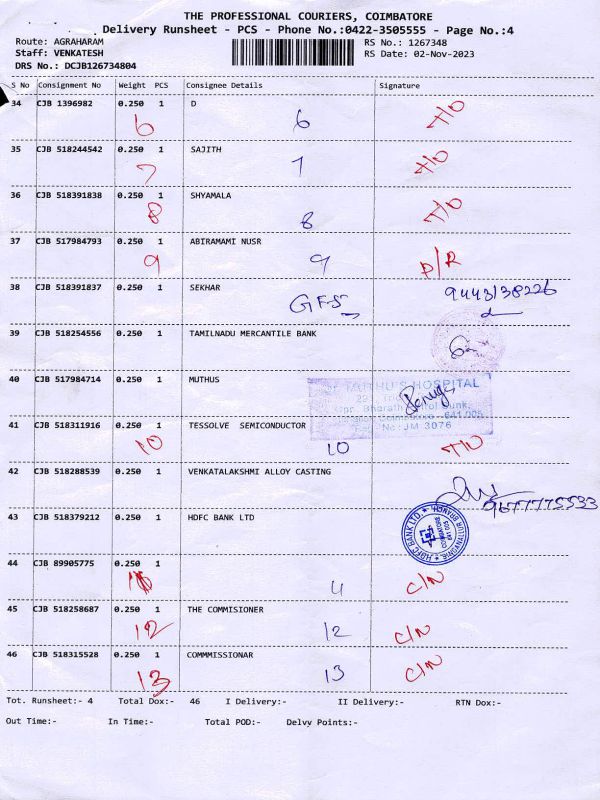 THE PROFESSIONAL COURIERS, COIMBATORE
Delivery Runsheet - PCS - Phone No.:0422-3505555 - Page No.:4
Route: AGRAHARAM
Staff: VENKATESH
DRS No.: DCJB126734804
RS No.: 1267348
RS Date: 02-Nov-2023
S No Consignment No Weight PCS Consignee Details Signature
34 CJB 1396982 0.250 1 D
6 6 T/O
35 CJB 518244542 0.250 1 SAJITH
7 7 T/O
36 CJB 518391838 0.250 1 SHYAMALA
8 8 T/O
37 CJB 517984793 0.250 1 ABIRAMAMI NUSR
9 9 D/R
38 CJB 518391837 0.250 1 SEKHAR
GF-5 9443138226
39 CJB 518254556 0.250 1 TAMILNADU MERCANTILE BANK
40 CJB 517984714 0.250 1 MUTHUS
MUTHU'S HOSPITAL
Bharath Petrol Bunk,
Coimbatore - 641 005
No: JM 3076
41 CJB 518311916 0.250 1 TESSOLVE SEMICONDUCTOR
10 10 T/O
42 CJB 518288539 0.250 1 VENKATALAKSHMI ALLOY CASTING
9677775533
43 CJB 518379212 0.250 1 HDFC BANK LTD
HDFC BANK LTD. SINGANALLUR BRANCH
COIMBATORE 641 005
44 CJB 89905775 0.250 1
4 C/N
45 CJB 518258687 0.250 1 THE COMMISIONER
12 12 C/N
46 CJB 518315528 0.250 1 COMMMISSIONAR
13 13 C/N
Tot. Runsheet:- 4 Total Dox:- 46 I Delivery:- II Delivery:- RTN Dox:-
Out Time:- In Time:- Total POD:- Delvy Points:-